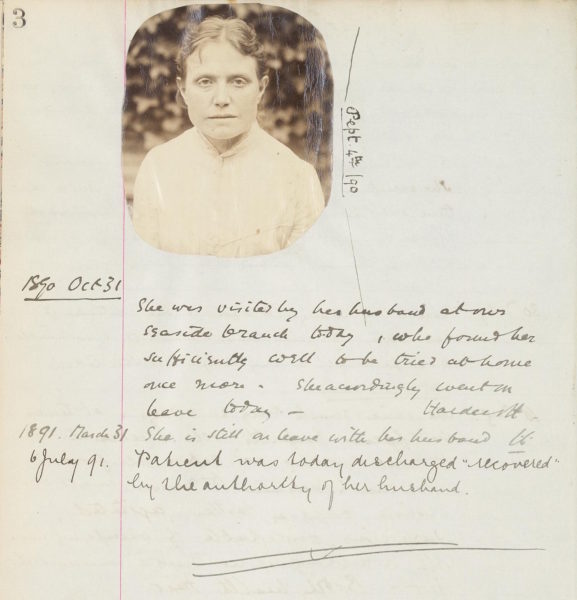 3
Sept. 4th /90
1890 Oct 31
She was visited by her husband at our
seaside branch today, who found her
sufficiently well to be tried at home
once more. She accordingly went on
leave today —
1891. March 31 She is still on leave with her husband
6 July 91. Patient was today discharged "recovered"
by the authority of her husband.